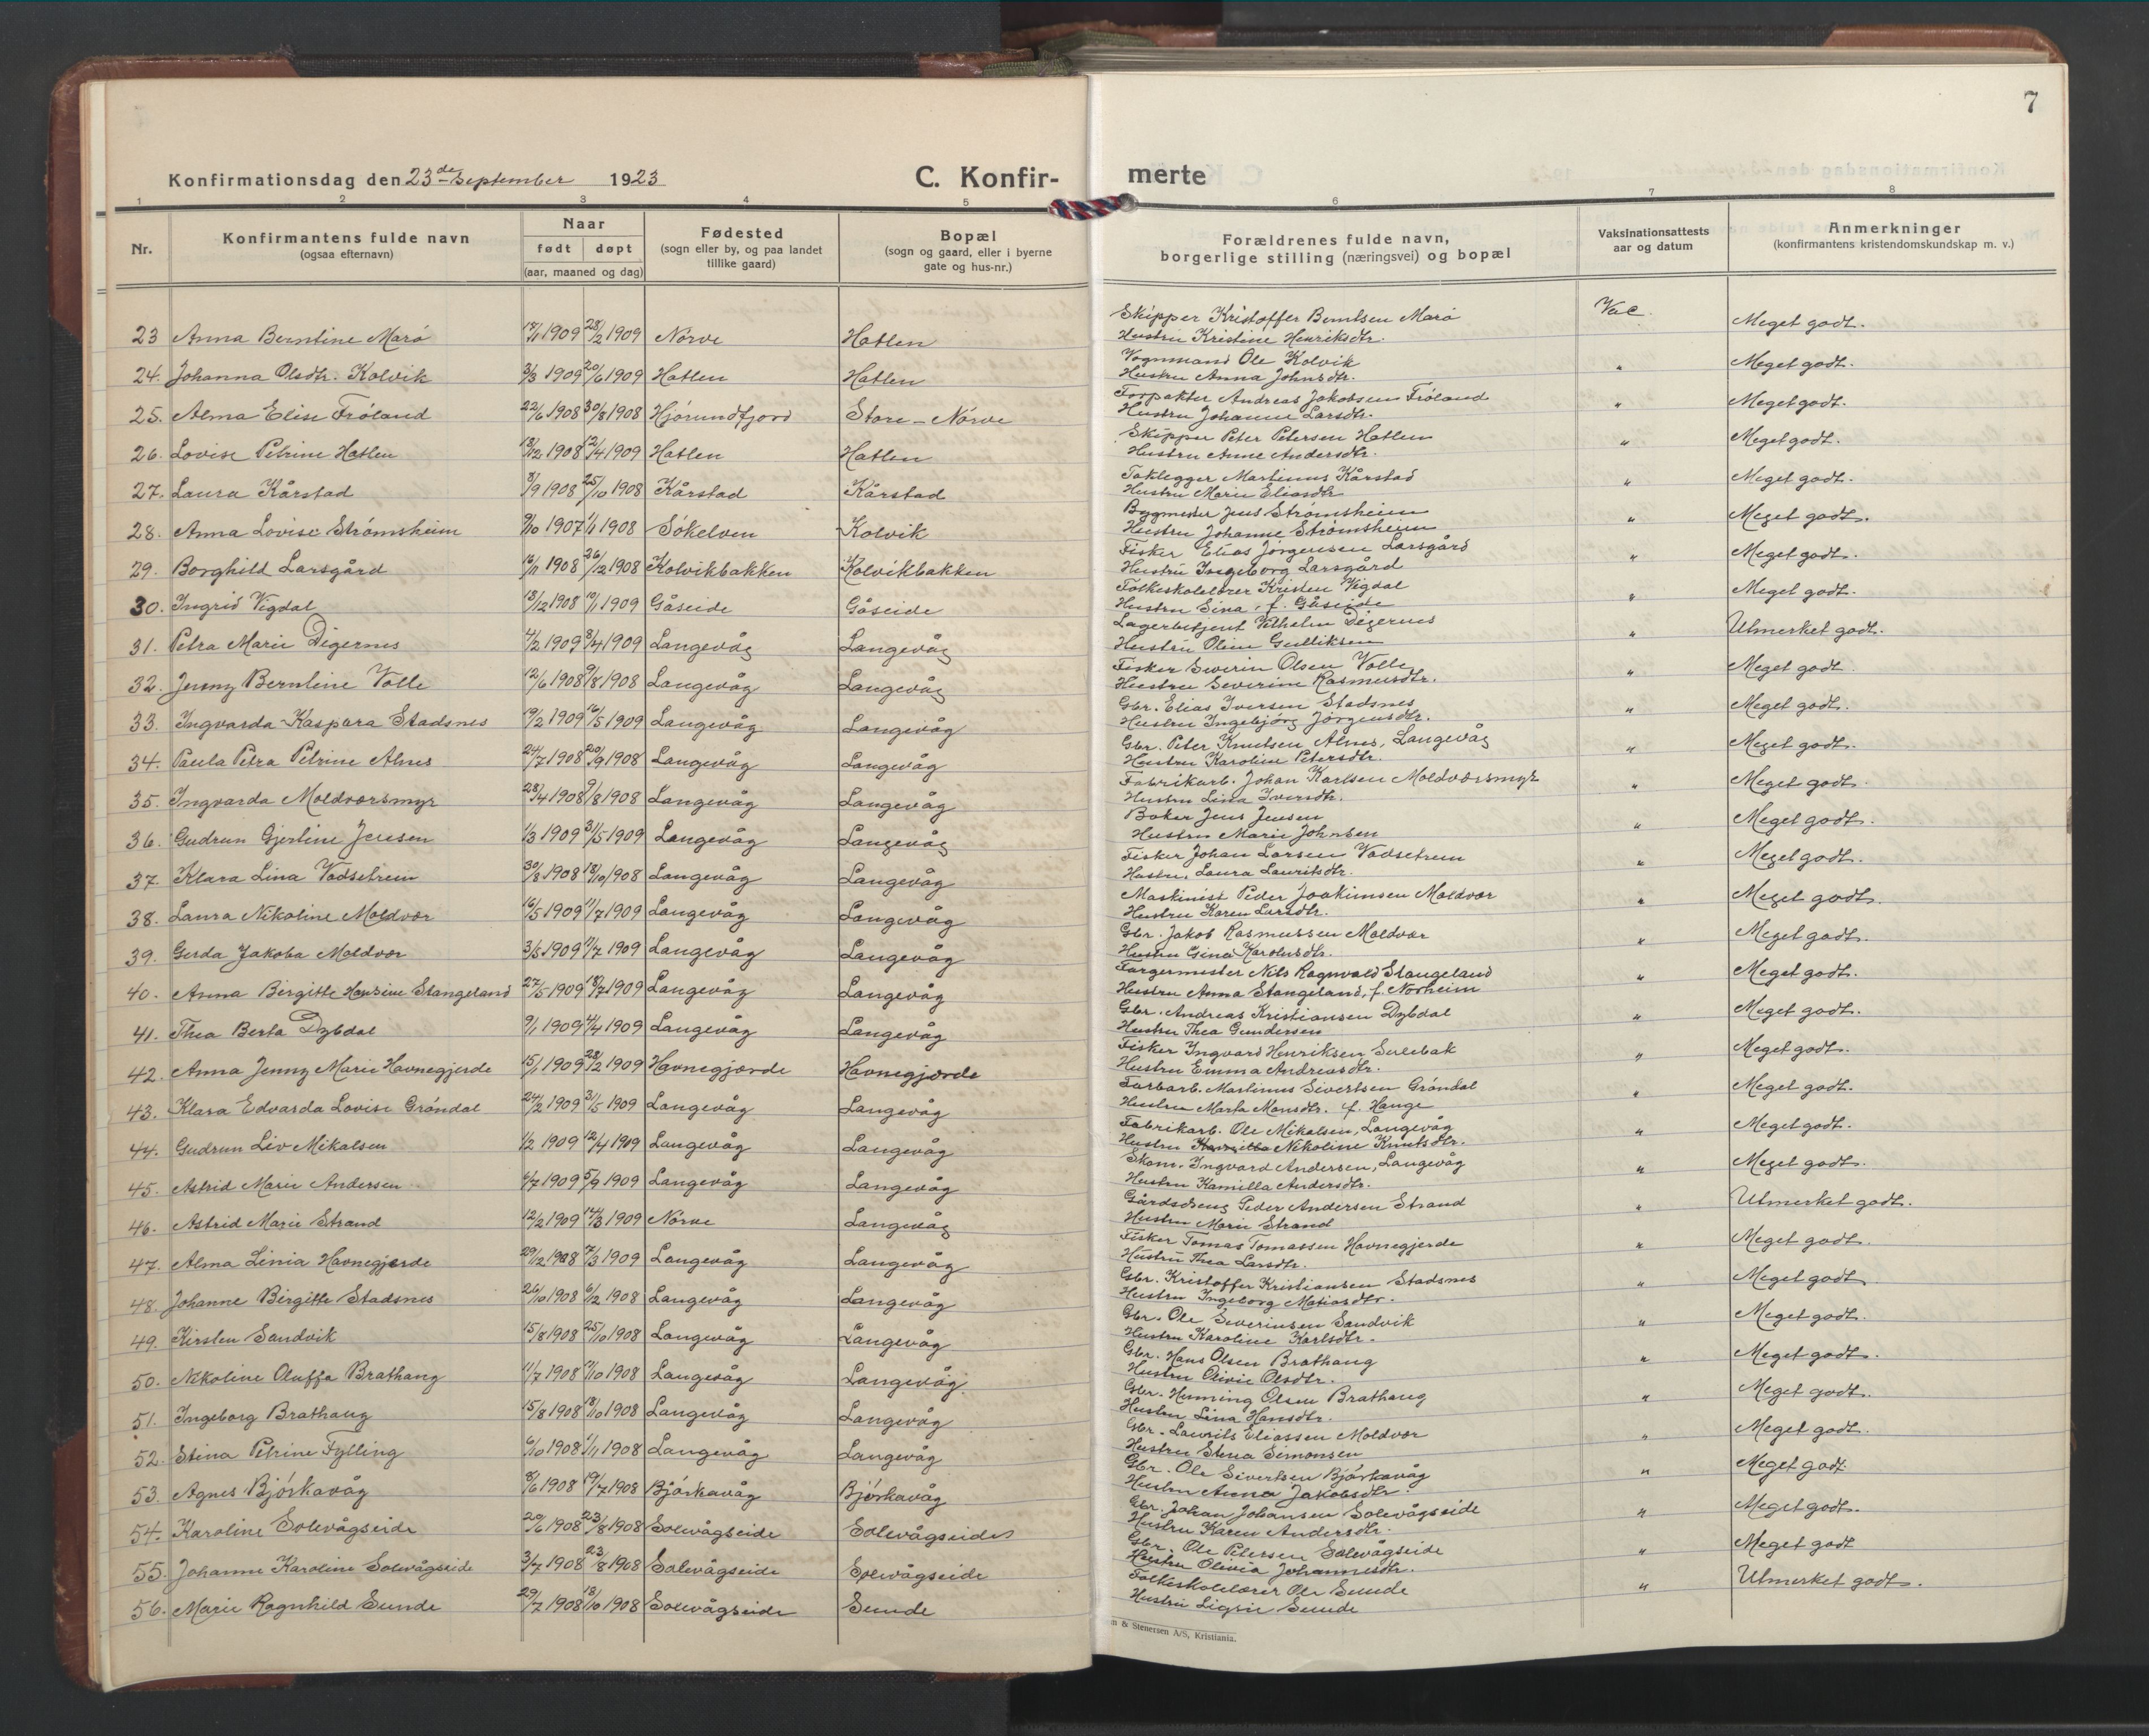 7
Konfirmationsdag den 23de September 1923
C. Konfir-
merte
1 2 3 4 5 6 7 8
Nr.
Konfirmantens fulde navn
(ogsaa efternavn)
Naar
født døpt
(aar, maaned og dag)
Fødested
(sogn eller by, og paa landet
tillike gaard)
Bopæl
(sogn og gaard, eller i byerne
gate og hus-nr.)
Forældrenes fulde navn,
borgerlige stilling (næringsvei) og bopæl
Vaksinationsattests
aar og datum
Anmerkninger
(konfirmantens kristendomskundskap m. v.)
23 Anna Berntine Marö 1909 28/2 1909 Nörve Hatlen
Skipper Kristoffer Berntsen Marö Vac. Meget godt.
Hustru Kristine Henriksdtr.
24. Johanna Olsdtr. Kolvik 3/3 1909 20/6 1909 Hatlen Hatlen
Vognmand Ole Kolvik " Meget godt.
Hustru Anna Johnsdtr.
25. Alma Elise Fröland 22/6 1908 30/8 1908 Hjörundfjord Store-Nörve
Forpakter Andreas Jakobsen Fröland " Meget godt.
Hustru Johanne Larsdtr.
26. Lovise Petrine Hatlen 13/12 1908 12/4 1909 Hatlen Hatlen
Skipper Peter Petersen Hatlen " Meget godt.
Hustru Anne Andersdtr.
27. Laura Kårstad 8/9 1908 25/10 1908 Kårstad Kårstad
Taklegger Martinus Kårstad " Meget godt.
Hustru Marie Eliasdtr
28. Anna Lovise Strömsheim 9/10 1907 1/1 1908 Sökelven Kolvik
Bygmester Jens Strömsheim " Meget godt.
Hustru Johanne Strömsheim
29. Borghild Larsgård 16/11 1908 26/12 1908 Kolvikbakken Kolvikbakken
Fisker Elias Jörgensen Larsgård " Meget godt.
Hustru Ingeborg Larsgård
30. Ingrid Vigdal 13/12 1908 10/1 1909 Gåseide Gåseide
Folkeskolelærer Kristen Vigdal " Meget godt.
Hustru Sina, f. Gåseide
31. Petra Marie Digernes 4/2 1909 3/4 1909 Langevåg Langevåg
Lagerbetjent Vilhelm Digernes " Utmerket godt.
Hustru Oline Gulliksen
32. Jenny Berntine Volle 12/6 1908 9/8 1908 Langevåg Langevåg
Fisker Severin Olsen Volle " Meget godt.
Hustru Severine Rasmusdtr.
33. Ingvarda Kaspara Stadsnes 19/2 1909 16/5 1909 Langevåg Langevåg
Gbr. Elias Iversen Stadsnes " Meget godt.
Hustru Ingebjörg Jörgensdtr.
34. Paula Petra Petrine Alnes 24/7 1908 20/9 1908 Langevåg Langevåg
Gbr. Peter Knutsen Alnes, Langevåg " Meget godt.
Hustru Karoline Petersdtr.
35. Ingvarda Moldværsmyr 28/4 1908 9/8 1908 Langevåg Langevåg
Fabrikarb. Johan Karlsen Moldværsmyr " Meget godt.
Hustru Lina Iversdtr.
36. Gudrun Gjertine Jensen 1/3 1909 31/5 1909 Langevåg Langevåg
Baker Jens Jensen " Meget godt.
Hustru Marie Johnsen
37. Klara Lina Vadsetrem 30/8 1908 18/10 1908 Langevåg Langevåg
Fisker Johan Larsen Vadsetrem " Meget godt.
Hustru Laura Lauritsdtr.
38. Laura Nikoline Moldvær 16/5 1909 11/7 1909 Langevåg Langevåg
Maskinist Peder Joakimsen Moldvær " Meget godt.
Hustru Karen Larsdtr.
39. Gerda Jakoba Moldvær 3/5 1909 11/7 1909 Langevåg Langevåg
Gbr. Jakob Rasmussen Moldvær " Meget godt.
Hustru Gina Karolusdtr.
40. Anna Birgitte Hansine Stangeland 27/5 1909 18/7 1909 Langevåg Langevåg
Fargermester Nils Ragnvald Stangeland " Meget godt.
Hustru Anna Stangeland, f. Norheim
41. Thea Berta Dybdal 9/1 1909 4/4 1909 Langevåg Langevåg
Gbr. Andreas Kristiansen Dybdal " Meget godt.
Hustru Thea Gundersen
42. Anna Jenny Marie Havnegjerde 15/1 1909 28/2 1909 Havnegjærde Havnegjærde
Fisker Ingvard Henriksen Sulebak " Meget godt.
Hustru Emma Andreasdtr.
43. Klara Edvarda Lovise Gröndal 24/2 1909 31/5 1909 Langevåg Langevåg
Farbarb. Martinus Sivertsen Gröndal " Meget godt.
Hustru Marta Monsdtr. f. Hauge
44. Gudrun Liv Mikalsen 1/2 1909 12/4 1909 Langevåg Langevåg
Fabrikarb. Ole Mikalsen, Langevåg " Meget godt.
Hustru Nikoline Knutsdtr.
45. Astrid Marie Andersen 6/7 1909 5/9 1909 Langevåg Langevåg
Skom. Ingvard Andersen, Langevåg " Meget godt.
Hustru Kamilla Andersdtr.
46. Astrid Marie Strand 12/2 1909 14/3 1909 Nörve Langevåg
Gårdsdreng Peder Andersen Strand " Utmerket godt.
Hustru Marie Strand
47. Alma Linia Havnegjerde 29/12 1908 7/3 1909 Langevåg Langevåg
Fisker Tomas Tomassen Havnegjerde " Meget godt.
Hustru Thea Larsdtr.
48. Johanne Birgitte Stadsnes 26/10 1908 6/12 1908 Langevåg Langevåg
Gbr. Kristoffer Kristiansen Stadsnes " Meget godt.
Hustru Ingeborg Matiasdtr.
49. Kirsten Sandvik 15/8 1908 25/10 1908 Langevåg Langevåg
Gbr. Ole Severinsen Sandvik " Meget godt.
Hustru Karoline Karlsdtr.
50. Nikoline Oluffa Brathaug 11/7 1908 11/10 1908 Langevåg Langevåg.
Gbr. Hans Olsen Brathaug " Meget godt.
Hustru Olivie Olsdtr.
51. Ingeborg Brathaug 15/8 1908 18/10 1908 Langevåg Langevåg
Gbr. Henning Olsen Brathaug " Meget godt.
Hustru Lina Hansdtr.
52. Stina Petrine Fylling 6/10 1908 1/11 1908 Langevåg Langevåg
Gbr. Laurits Eliassen Moldvær " Meget godt.
Hustru Stena Simonsen
53. Agnes Björkavåg 8/6 1908 19/7 1908 Björkavåg Björkavåg
Gbr. Ole Sivertsen Björkavåg " Meget godt.
Hustru Anna Jakobsdtr.
54. Karoline Solevågseide 20/6 1908 23/8 1908 Solevågseide Solevågseide
Gbr. Johan Johansen Solevågseide " Meget godt.
Hustru Karen Andersdtr.
55. Johanne Karoline Solevågseide 3/7 1908 23/8 1908 Solevågseide Solevågseide
Gbr. Ole Petersen Solevågseide " Meget godt
Hustru Olivia Johannesdtr.
56. Marie Ragnhild Sunde 29/7 1908 18/10 1908 Solevågseide Sunde
Folkeskolelærer Ole Sunde " Utmerket godt.
Hustru Sunde
m & Stenersen A/S, Kristiania.